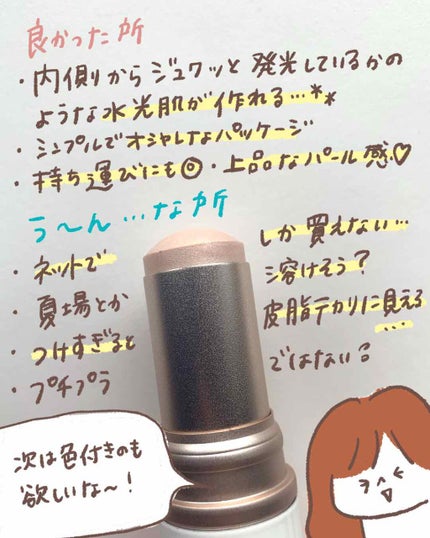 良かった所
・内側からジュワッと発光しているかの
ような水光肌が作れる…**
・シンプルでオシャレなパッケージ
・持ち運びにも◎・上品なパール感♡
う〜ん…な所
・ネットでしか買えない…
・夏場とか溶けそう?
・つけすぎると皮脂テカリに見える…
・プチプラではない?
次は色付きのも
欲しいな〜!